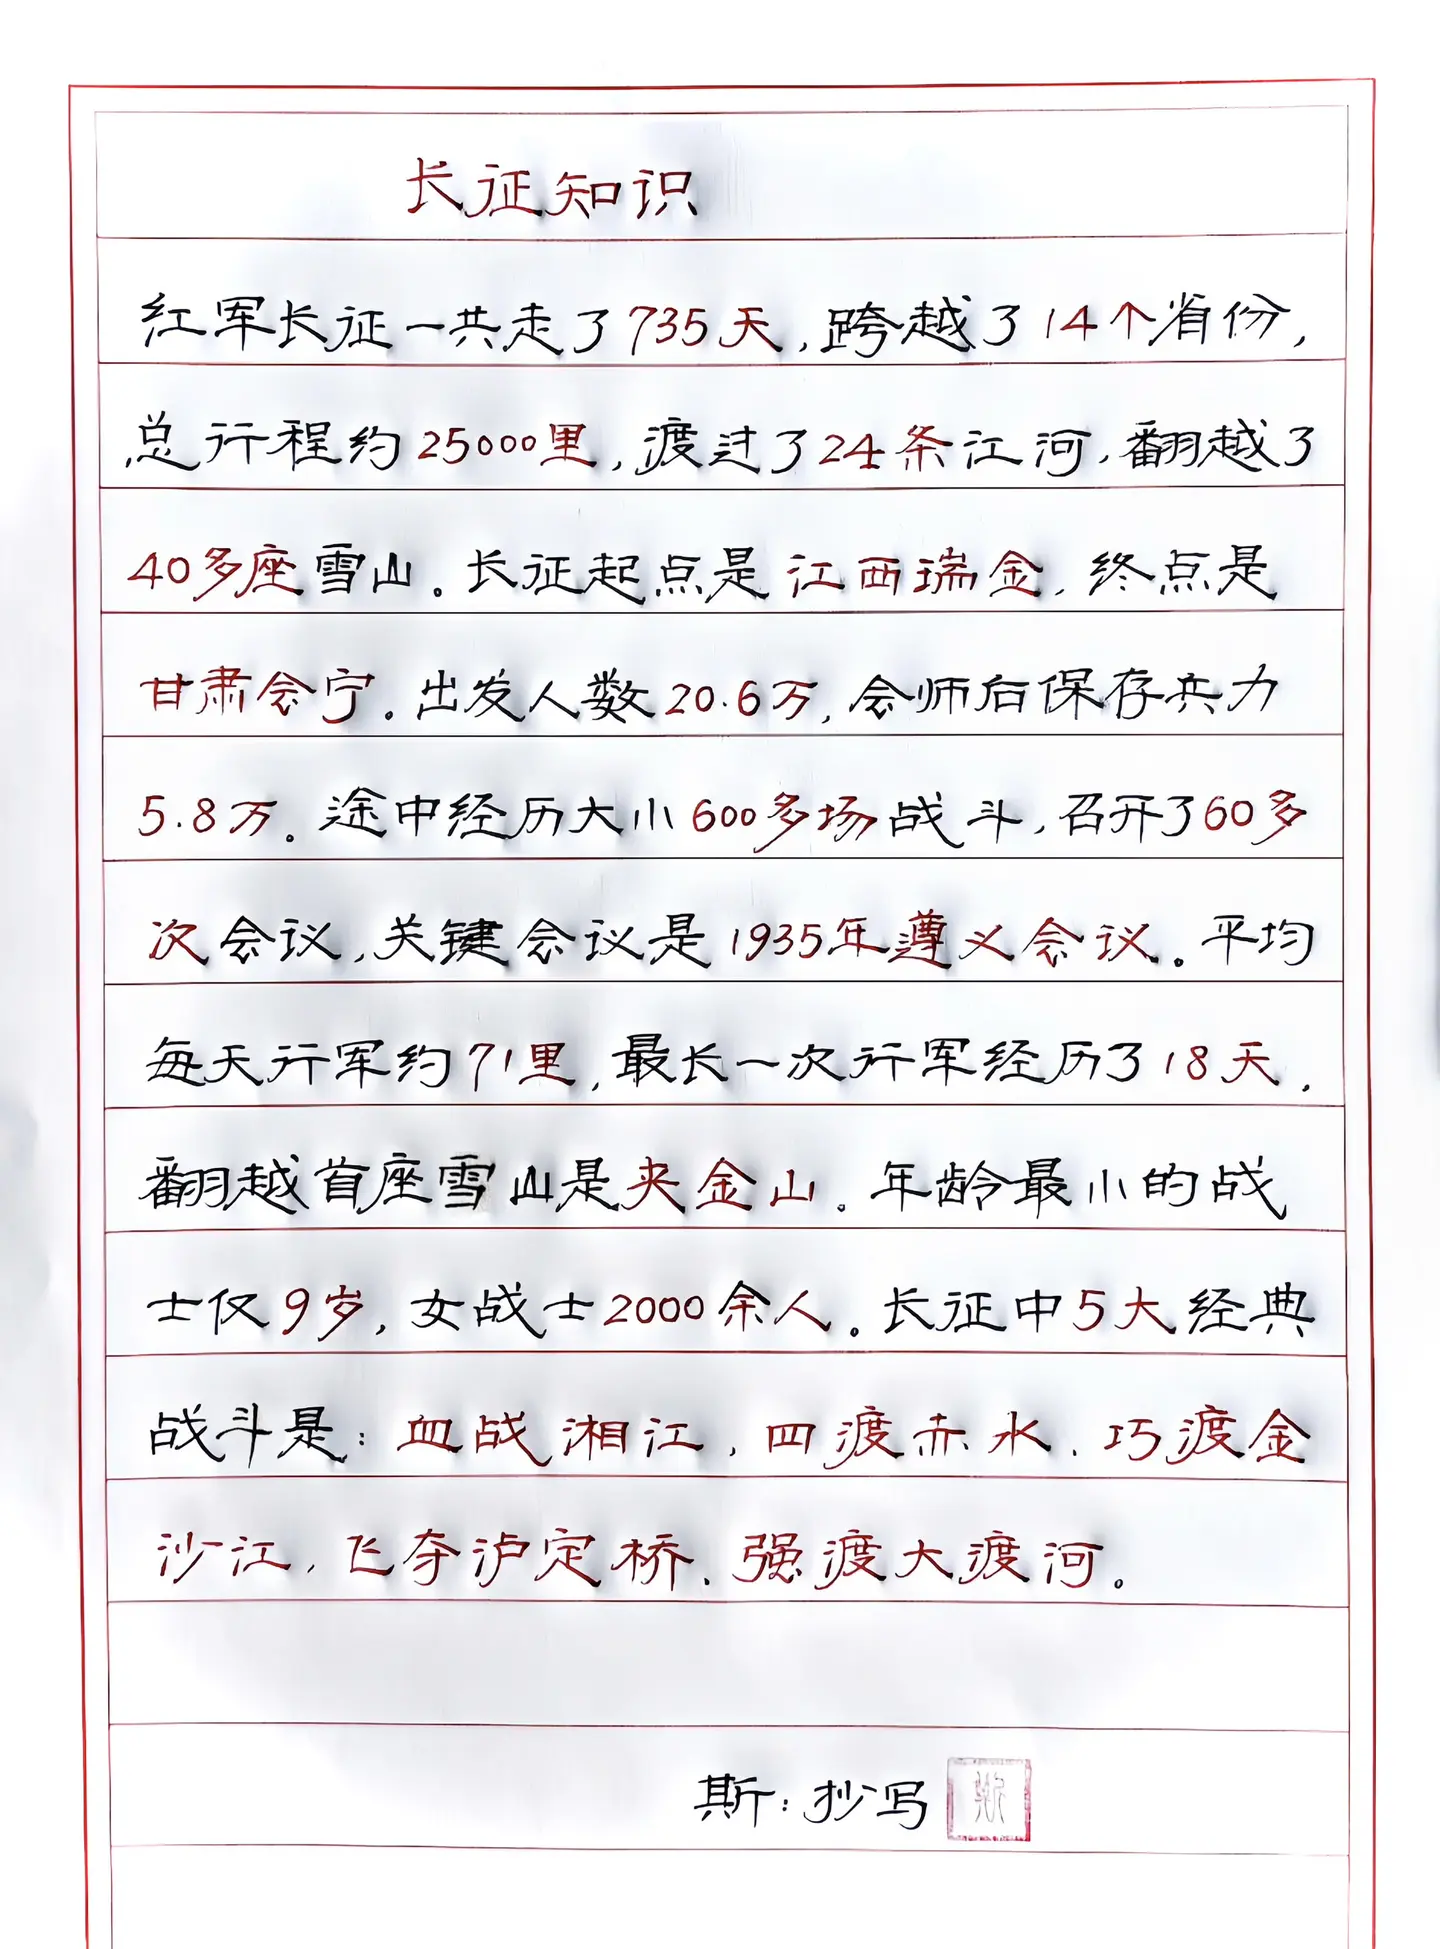 长征知识
红军长征一共走了735天,跨越了14个省份,
总行程约25000里,渡过了24条江河,翻越了
40多座雪山。长征起点是江西瑞金,终点是
甘肃会宁。出发人数20.6万,会师后保存兵力
5.8万。途中经历大小600多场战斗,召开了60多
次会议,关键会议是1935年遵义会议。平均
每天行军约71里,最长一次行军经历了18天.
翻越首座雪山是夹金山。年龄最小的战
士仅9岁,女战士2000余人。长征中5大经典
战斗是:血战湘江,四渡赤水、巧渡金
沙江,飞夺泸定桥、强渡大渡河。
斯:抄写